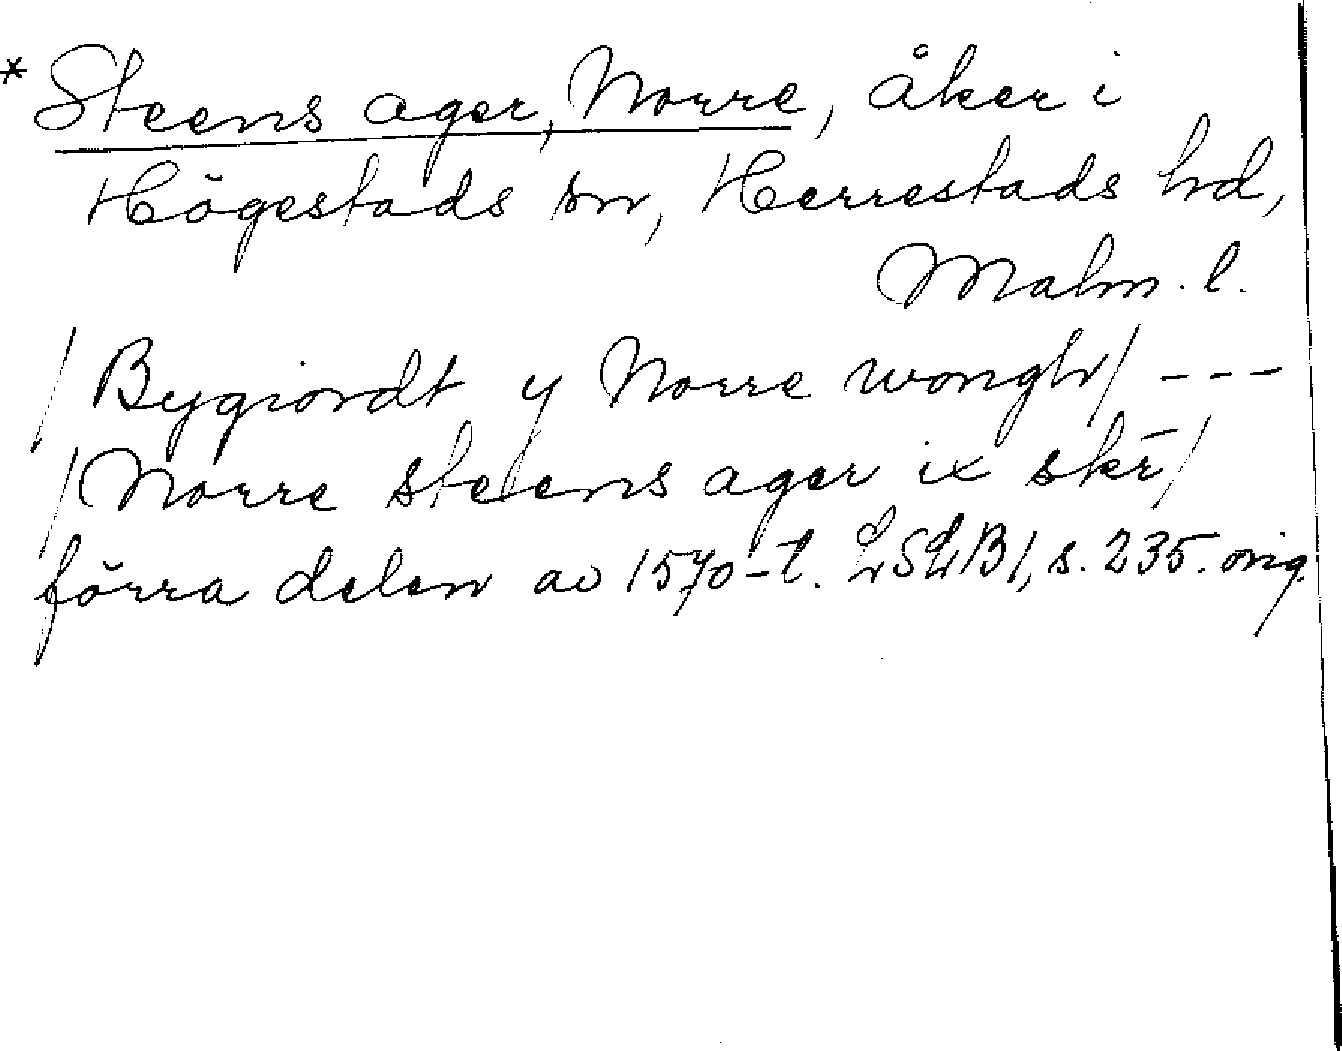 * Steens ager, Norre, åker i
Högestads sn, Herrestads hd,
Malm. l.
/Bygiordt y Norre wongh/ ---
/Norre steens ager ix skr̄/
förra delen av 1570-t. LSLB1, s. 235. orig.